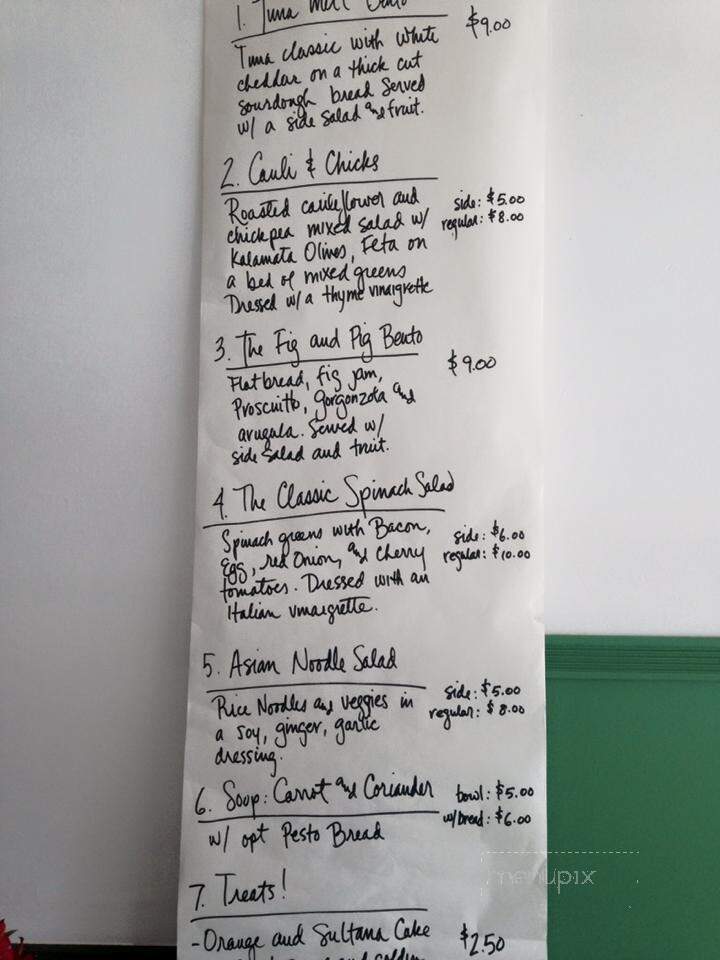 1. Tuna Melt Bento
$9.00
Tuna classic with white
cheddar on a thick cut
sourdough bread Served
w/ a side salad and fruit.
2. Cauli & Chicks
Roasted cauliflower and
chickpea mixed salad w/
Kalamata Olives, Feta on
a bed of mixed greens
Dressed w/ a thyme vinaigrette
side: $5.00
regular: $8.00
3. The Fig and Pig Bento
$9.00
Flatbread, fig jam,
Proscuitto, gorgonzola and
arugala. Served w/
side salad and fruit.
4. The Classic Spinach Salad
Spinach greens with Bacon,
Egg, red Onion, and Cherry
tomatoes. Dressed with an
Italian vinaigrette.
side: $6.00
regular: $10.00
5. Asian Noodle Salad
Rice Noodles and veggies in
a soy, ginger, garlic
dressing.
side: $5.00
regular: $8.00
6. Soup: Carrot and Coriander
w/ opt Pesto Bread
bowl: $5.00
w/bread: $6.00
7. Treats!
-Orange and Sultana Cake
$2.50
and golden
menupix